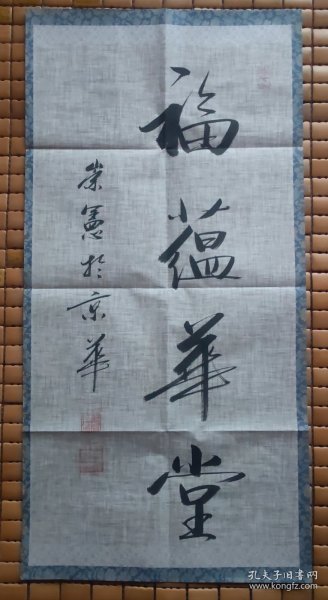 福蕴華堂
荣憲於京華
孔夫子旧書网
www.kongfz.com